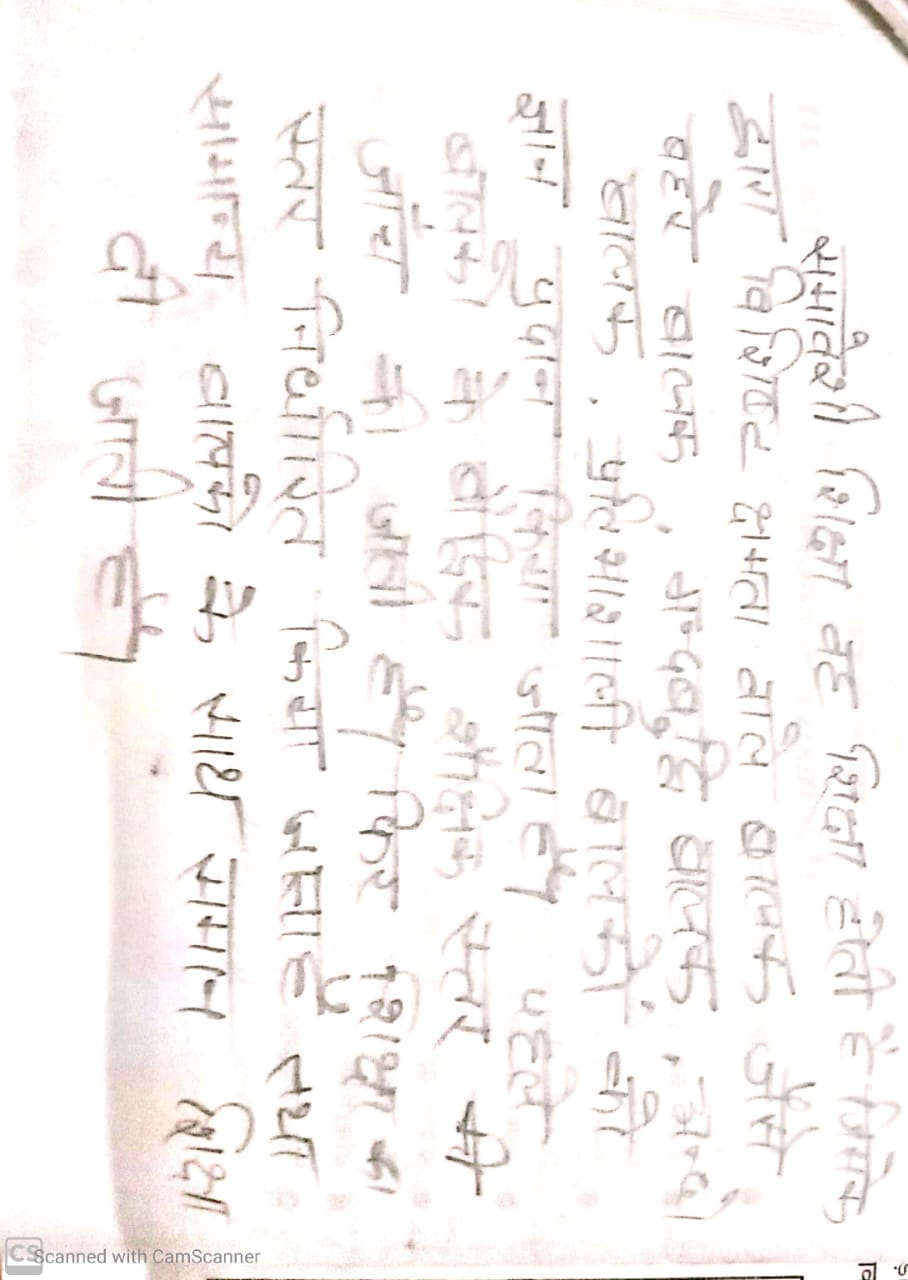 समावेशी शिक्षा वह शिक्षा होती है जिसके
द्वारा विशिष्ट क्षमता वाले बालक जैसे
बहरे बालक, मन्दबुद्धि बालक, अन्धे
बालक, प्रतिभाशाली बालकों को
ज्ञान प्रदान किया जाता है। पहले
बालकों के बौद्धिक शैक्षिक स्तर की
जांच की जाती है। फिर शिक्षा का
स्तर निर्धारित किया जाता है तथा
सामान्य बालकों के साथ समान शिक्षा
दी जाती है।
CS Scanned with CamScanner